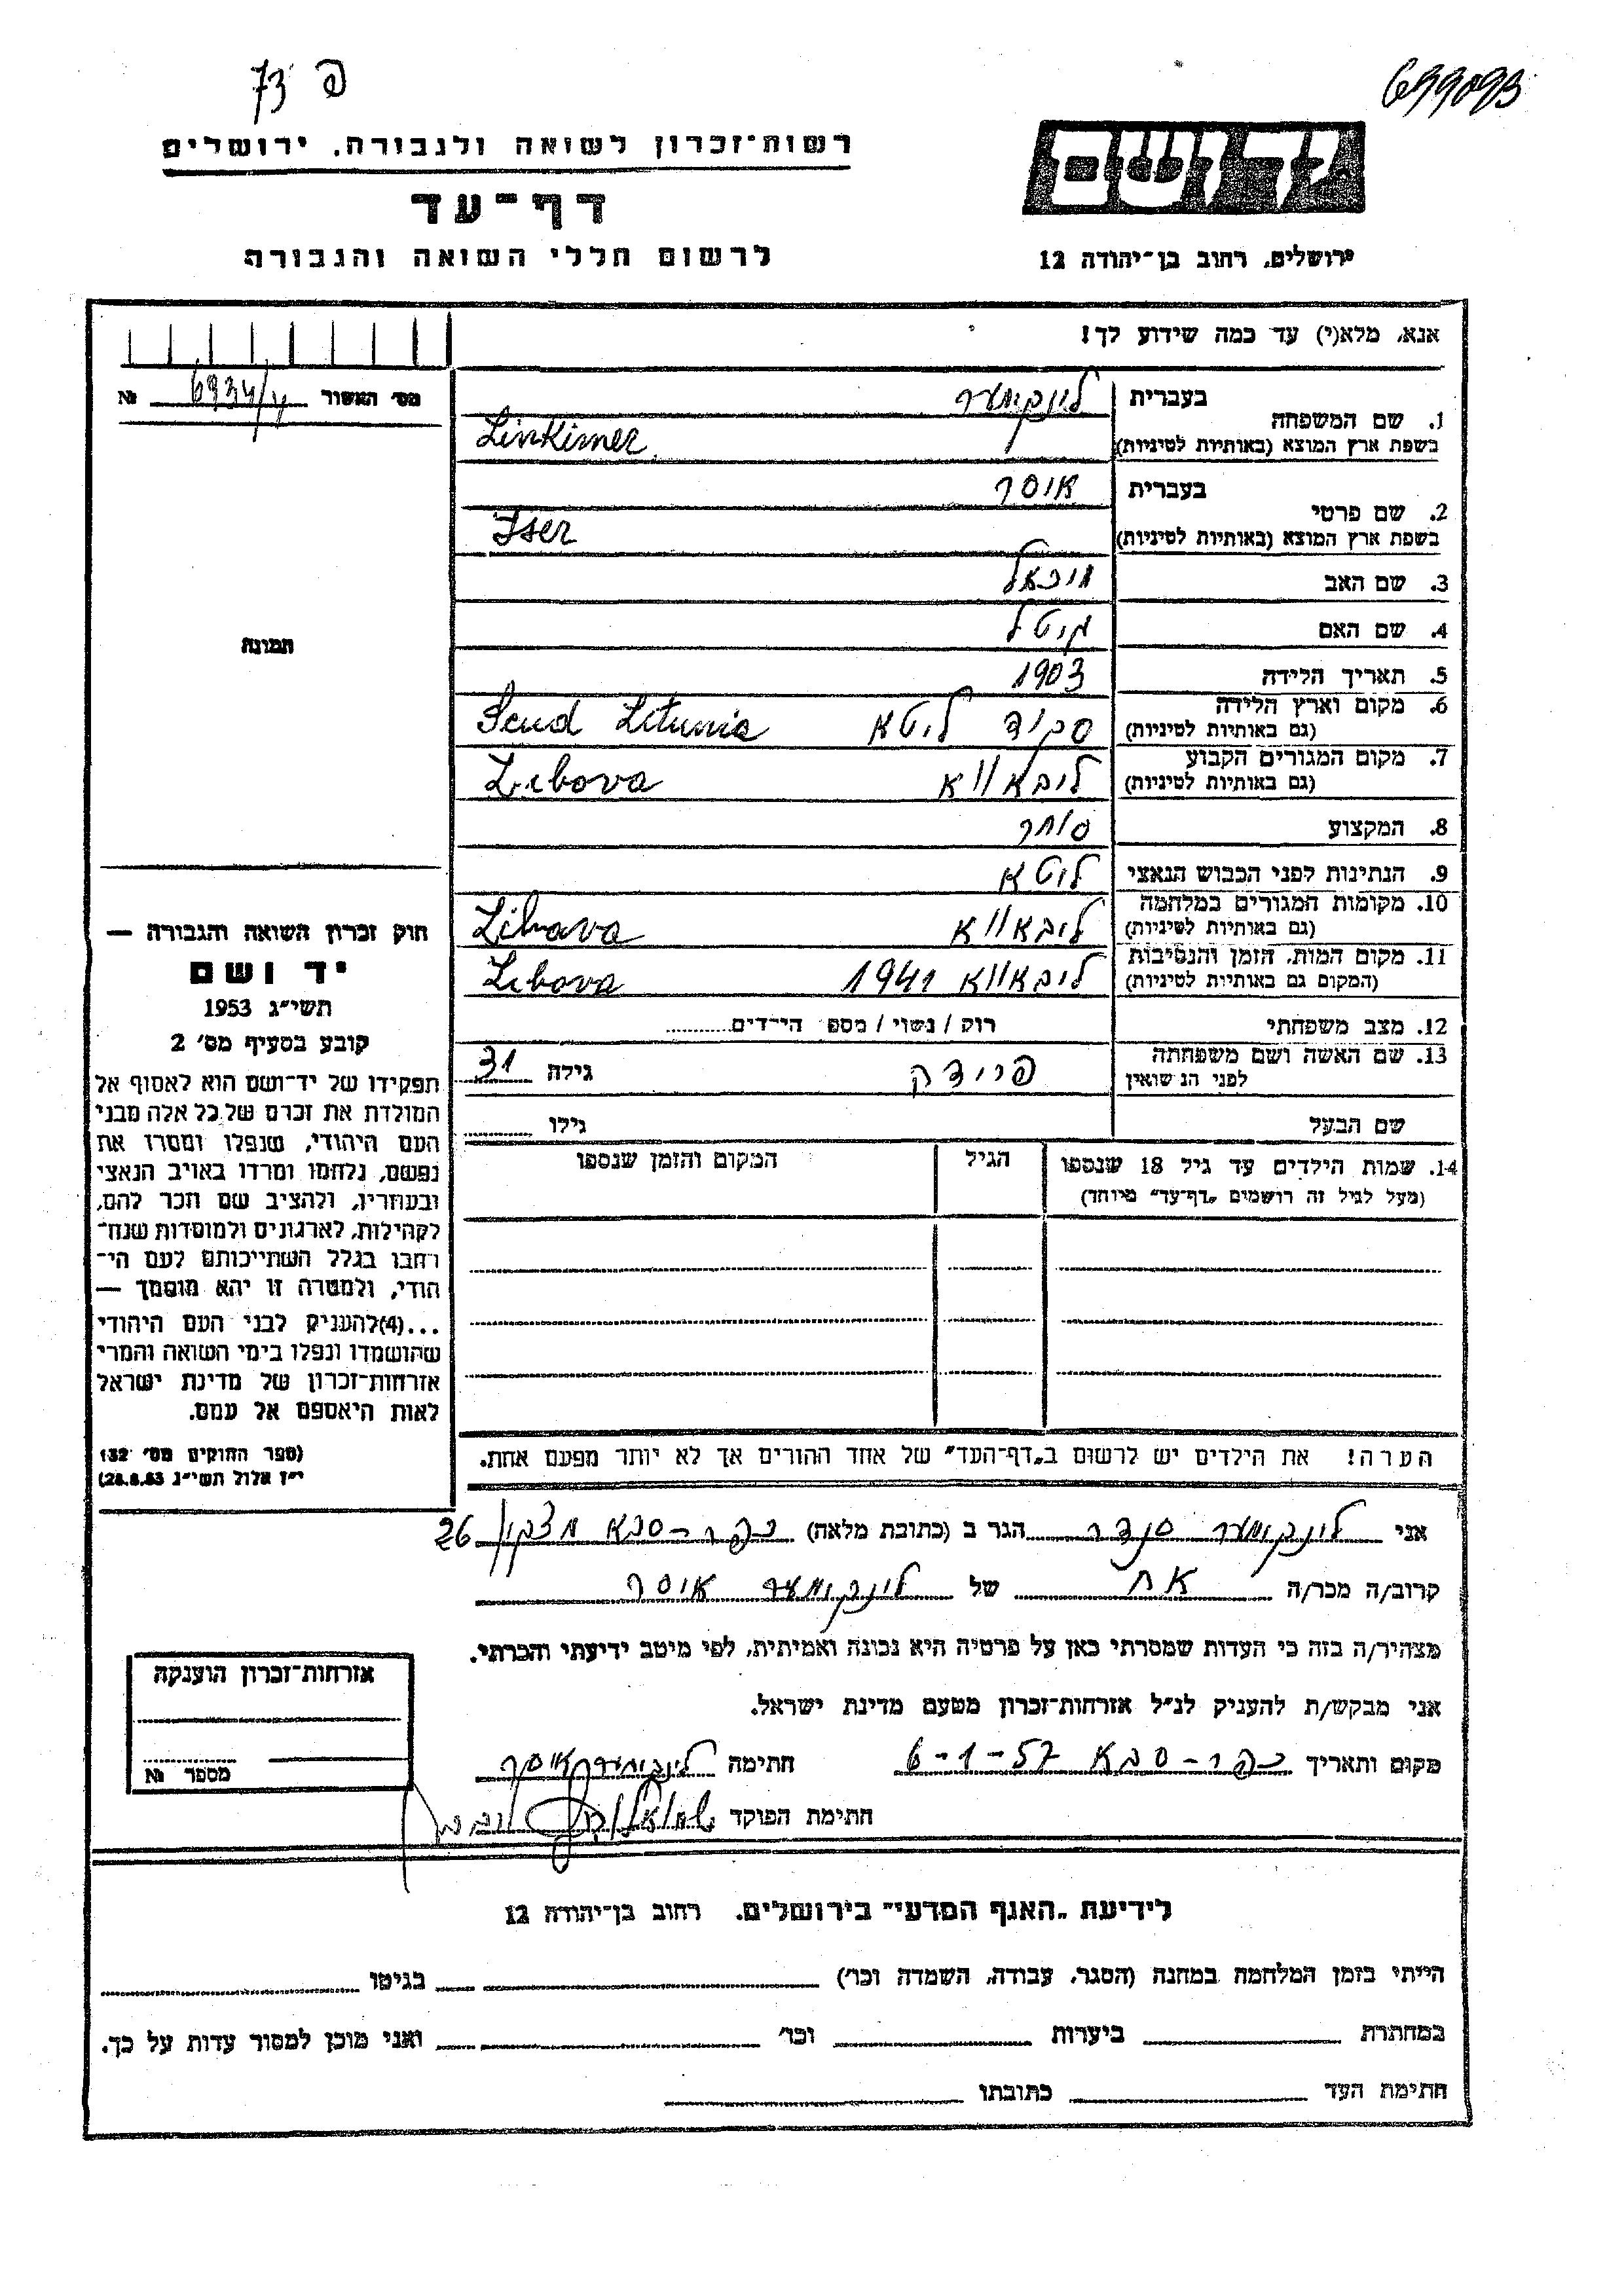 פ 73
699093
רשות־זכרון לשואה ולגבורה, ירושלים
דף־עד
לרשום חללי השואה והגבורה
יד ושם
ירושלים, רחוב בן־יהודה 12
אנא, מלא(י) עד כמה שידוע לך!
מס׳ האשור 6934/4 №
1. שם המשפחה
בעברית לינקימער
בשפת ארץ המוצא (באותיות לטיניות) Linkimer
2. שם פרטי
בעברית איסר
בשפת ארץ המוצא (באותיות לטיניות) Iser
3. שם האב מיכאל
4. שם האם גיטל
5. תאריך הלידה 1903
6. מקום וארץ הלידה סקוד ליטא Scud Litunia
(גם באותיות לטיניות)
7. מקום המגורים הקבוע ליבאווא Libova
(גם באותיות לטיניות)
8. המקצוע סוחר
9. הנתינות לפני הכבוש הנאצי ליטא
10. מקומות המגורים במלחמה ליבאווא Libava
(גם באותיות לטיניות)
11. מקום המות, הזמן והנסיבות ליבאווא 1941 Libova
(המקום גם באותיות לטיניות)
12. מצב משפחתי רוק / נשוי / מספ׳ הילדים
13. שם האשה ושם משפחתה פרידה גילה 31
לפני הנשואין
שם הבעל גילו
14. שמות הילדים עד גיל 18 שנספו הגיל המקום והזמן שנספו
(מעל לגיל זה רושמים „דף־עד״ מיוחד)
הערה! את הילדים יש לרשום ב„דף־העד״ של אחד ההורים אך לא יותר מפעם אחת.
תמונה
חוק זכרון השואה והגבורה —
יד ושם
תשי״ג 1953
קובע בסעיף מס׳ 2
תפקידו של יד־ושם הוא לאסוף אל
המולדת את זכרם של כל אלה מבני
העם היהודי, שנפלו ומסרו את
נפשם, נלחמו ומרדו באויב הנאצי
ובעוזריו, ולהציב שם וזכר להם,
לקהילות, לארגונים ולמוסדות שנח־
רבו בגלל השתייכותם לעם הי־
הודי, ולמטרה זו יהא מוסמך —
...(4)להעניק לבני העם היהודי
שהושמדו ונפלו בימי השואה והמרי
אזרחות־זכרון של מדינת ישראל
לאות היאספם אל עמם.
(ספר החוקים מס׳ 132
י״ז אלול תשי״ג 28.8.53)
אני לינקימער סנדר הגר ב (כתובת מלאה) כפר-סבא 26
קרוב/ה מכר/ה אח של לינקימער איסר
מצהיר/ה בזה כי העדות שמסרתי כאן על פרטיה היא נכונה ואמיתית, לפי מיטב ידיעתי והכרתי.
אני מבקש/ת להעניק לנ״ל אזרחות־זכרון מטעם מדינת ישראל.
מקום ותאריך כפר-סבא 6-1-57 חתימה
חתימת הפוקד
אזרחות־זכרון הוענקה
מספר №
לידיעת „האגף המדעי״ בירושלים. רחוב בן־יהודה 12
הייתי בזמן המלחמה במחנה (הסגר, עבודה, השמדה וכו׳) בגיטו
במחתרת ביערות וכו׳ ואני מוכן למסור עדות על כך.
חתימת העד כתובתו